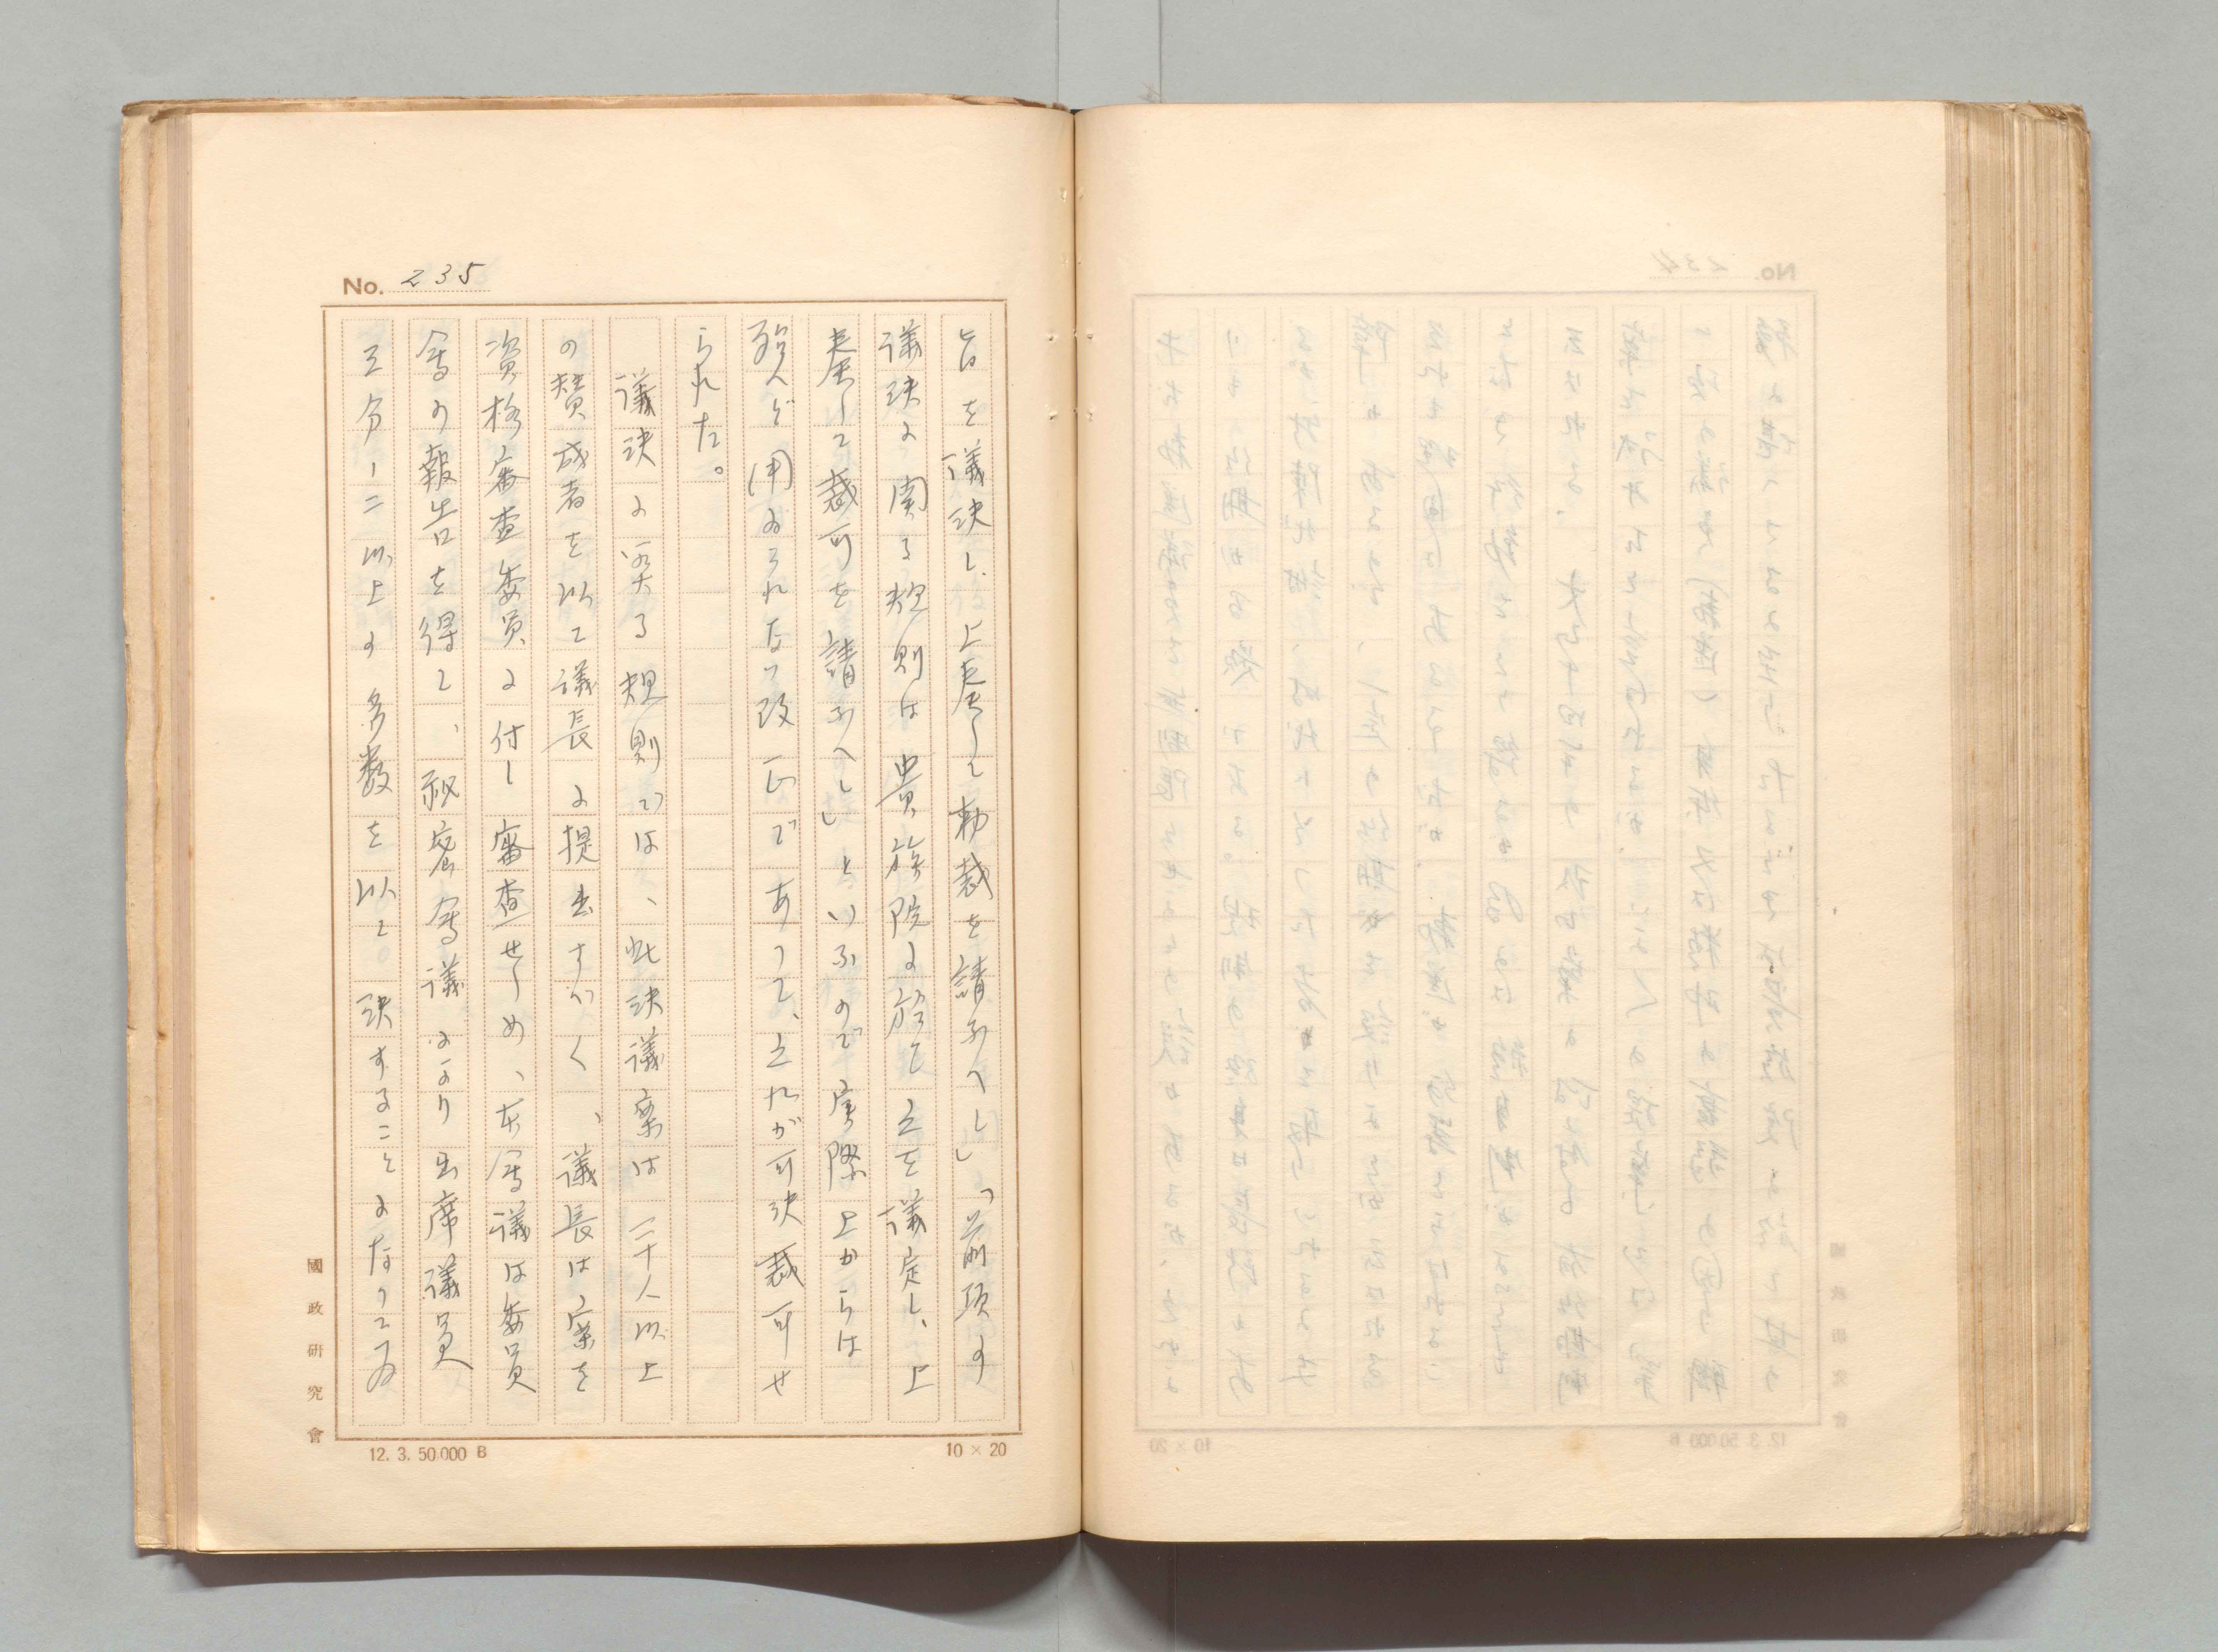 No. 235
旨を議決し、上奏して勅裁を請ふへし」「前項の
議決に関る規則は貴族院に於て之を議定し、上
奏して裁可を請ふへし」といふので実際上からは
殆んど用ゐられない改正であつて、之れが可決裁可せ
られた。
議決に関る規則では、此決議案は三十人以上
の賛成者を以て議長に提出すべく、議長は案を
資格審査委員に付し審査せしめ、本会議は委員
会の報告を得て、秘密会議により出席議員
三分ノ二以上の多数を以て決することになつてゐ
國政研究會
12. 3. 50,000 B
10 × 20